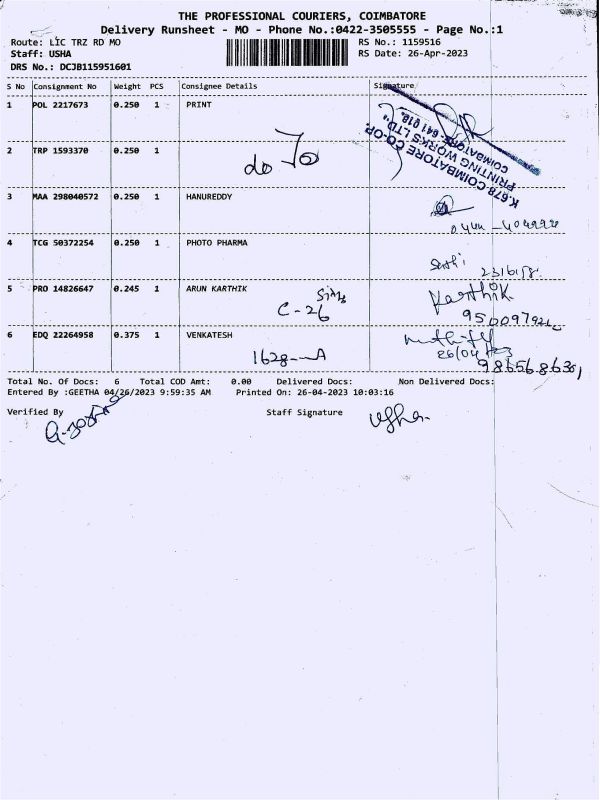 THE PROFESSIONAL COURIERS, COIMBATORE
Delivery Runsheet - MO - Phone No.:0422-3505555 - Page No.:1
Route: LIC TRZ RD MO
RS No.: 1159516
Staff: USHA
RS Date: 26-Apr-2023
DRS No.: DCJB115951601
S No Consignment No Weight PCS Consignee Details Signature
1 POL 2217673 0.250 1 PRINT
K.678 COIMBATORE CO-OP.
PRINTING WORKS LTD.,
COIMBATORE - 641 018.
2 TRP 1593370 0.250 1
do To
3 MAA 298040572 0.250 1 HANUREDDY
4 TCG 50372254 0.250 1 PHOTO PHARMA
5 PRO 14826647 0.245 1 ARUN KARTHIK
Karthik
C-26
6 EDQ 22264958 0.375 1 VENKATESH
26/04
1628-A
Total No. Of Docs: 6 Total COD Amt: 0.00 Delivered Docs: Non Delivered Docs:
Entered By :GEETHA 04/26/2023 9:59:35 AM Printed On: 26-04-2023 10:03:16
Verified By Staff Signature
Usha.